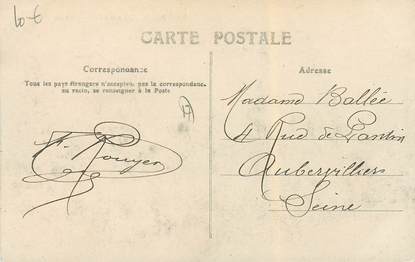 10-€
CARTE POSTALE
Correspondance
Tous les pays étrangers n'acceptent pas la correspondance
au recto, se renseigner à la Poste
F. Rouyer
Adresse
Madame Ballée
4 Rue de Pantin
Aubervilliers
Seine